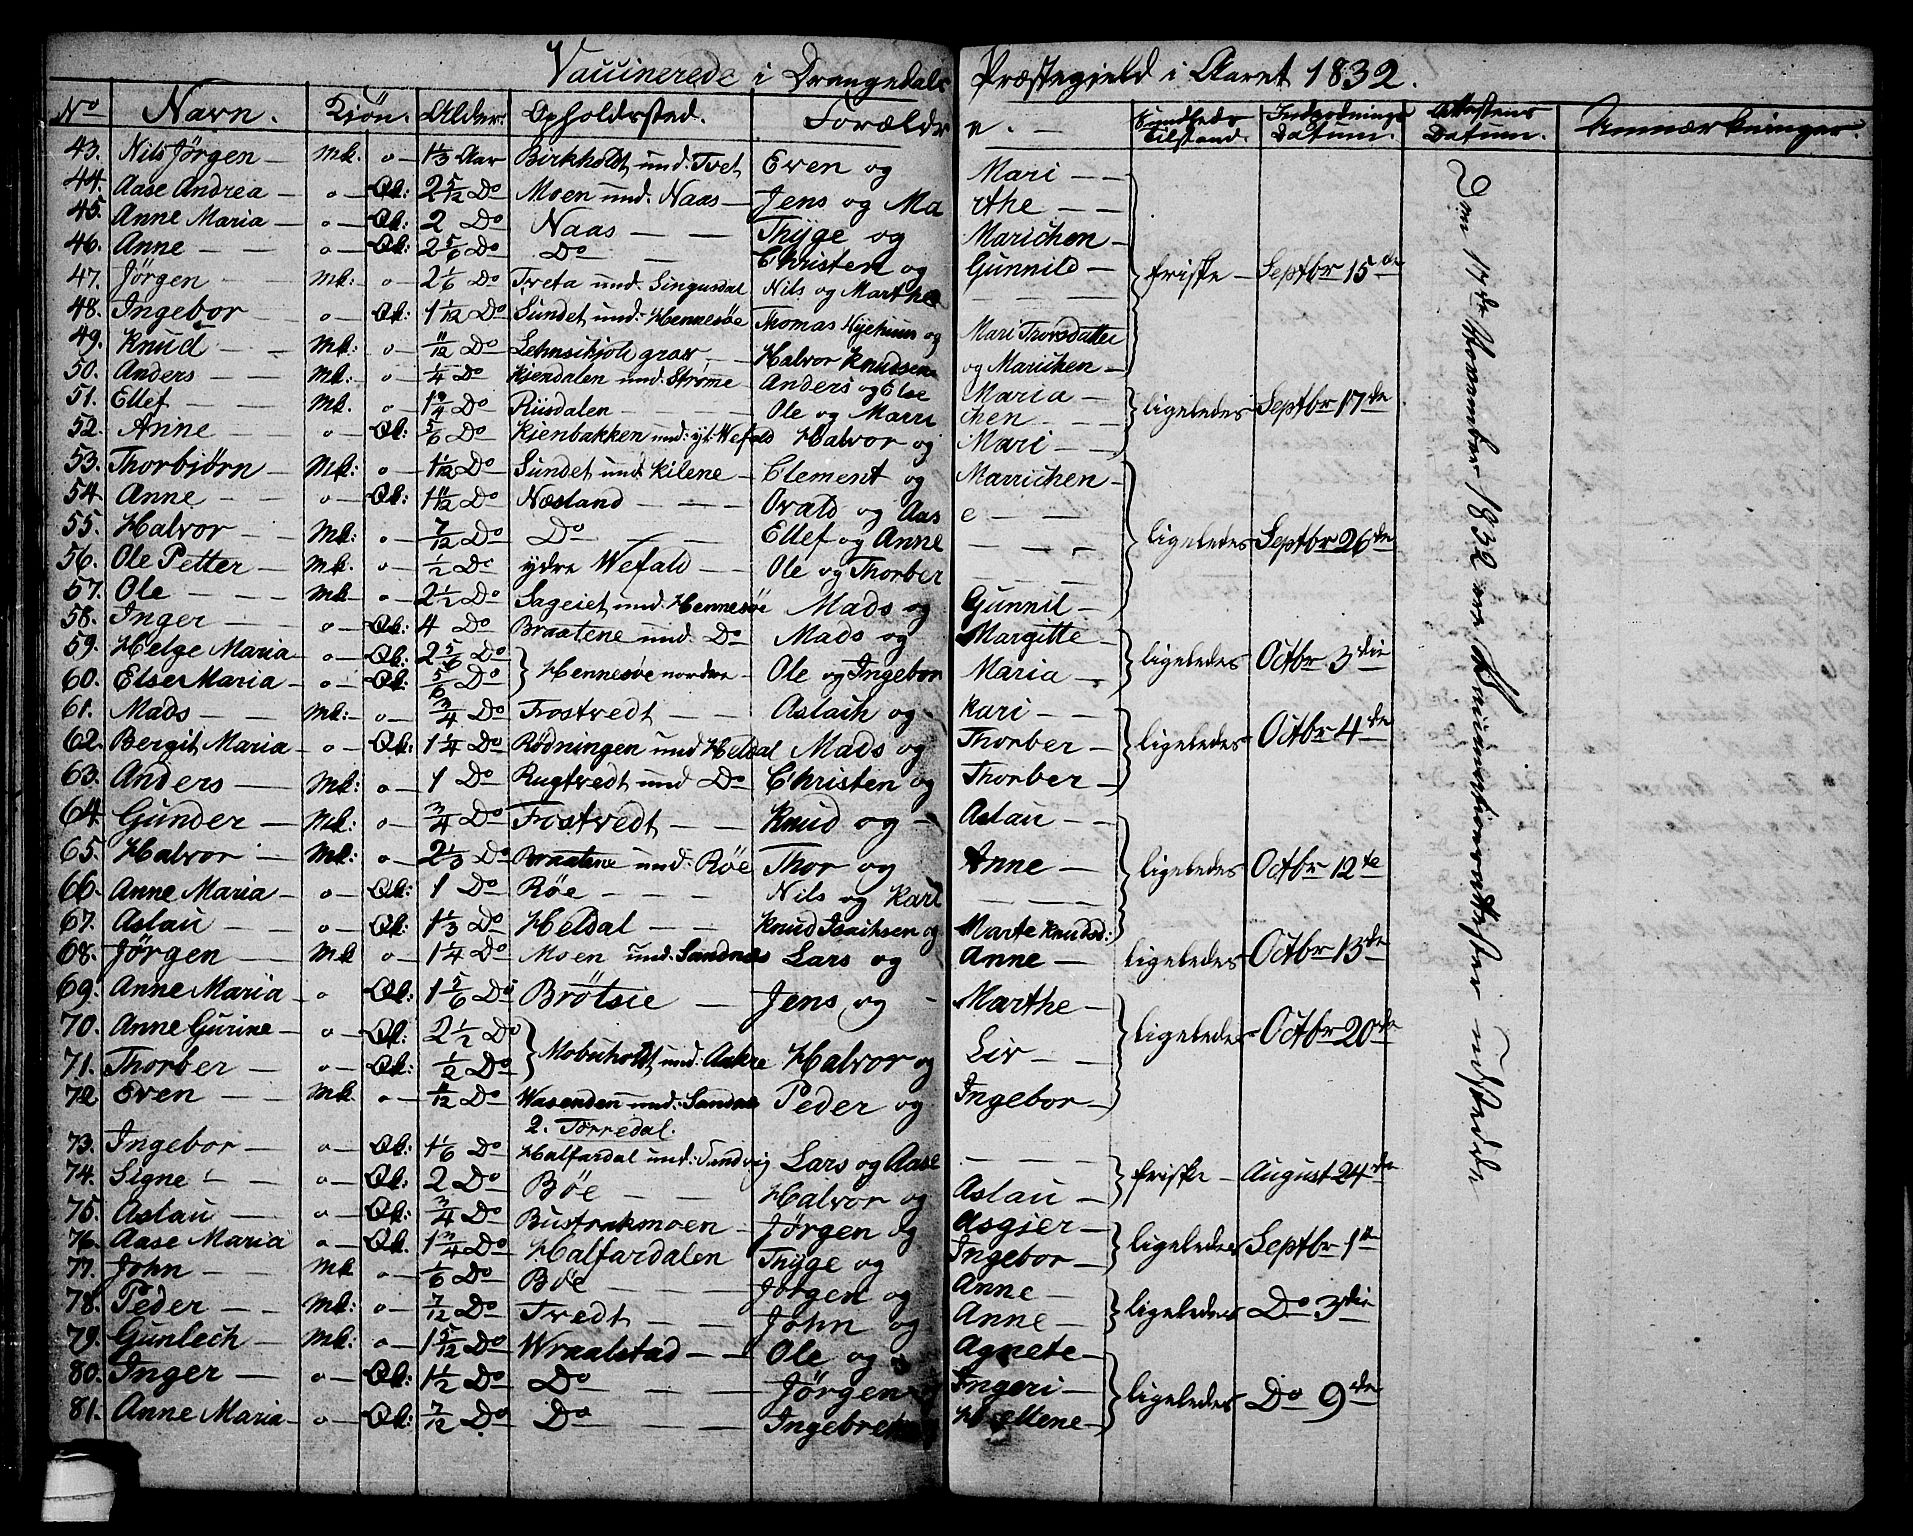 Vaccinerede i Drangedals Præstegield i Aaret 1832.
No Navn. Kiön. Alder. Opholdssted. Forældre. Sundheds Tilstand. Indpodnings Datum. Attestens Datum. Anmærkninger
43. Nils Jörgen — Mk. o— 1 1/3 Aar Birkholdt und. Tvet Even og Mari — —
44. Aase Andrea — o— Qk: 2 5/12 Do Moen und. Naas — Jens og Marthe — —
45. Anne Maria — o— Qk: 2 Do Naas — — Thyge og Marichen —
46. Anne — — o— Qk: 2 5/6 Do Do — Christen og Gunnild — friske — Septbr 15de
47. Jörgen — Mk: o— 2 1/6 Do Tveta und. Singusdal Nils og Marthe — — —
48. Ingebor — — o— Qk: 1 1/12 Do Sundet und: Hennesöe Thomas og Mari Thorsdatter
49. Knud — — Mk: o— 11/12 Do Halvor Knudsen og Marichen —
50. Anders — — Mk: o— 1/4 Do Kjendalen und. Strøme — Anders og Else Maria —
51. Ellef — — Mk. o— Do Riisdalen — — Ole og Marrichen — ligeledes Septbr 17de
52. Anne — — o— Qk: 5/6 Do Kjenbakken und: yt: Wefald Halvor og Mari — —
53. Thorbiörn — Mk: o— 1 1/12 Do Sundet und. Kilene — Clement og Marrichen —
54. Anne — — o— Qk: 1 11/12 Do Næsland — — — Ovald og Aase — — —
55. Halvor — — Mk: o— 7/12 Do Do — — Ellef og Anne — — — ligeledes Septbr 26de
56. Ole Petter — Mk. o— 1/2 Do ydre Wefald — — Ole og Thorber — — —
57. Ole — — — Mk— o— 2 1/2 Do Sageiet und. Hennesöe Mads og Gunnil —
58. Inger — — o— Qk: 4 Do Braatene und. Do Mads og Margitte —
59. Helge Maria — o— Qk: 2 5/6 Do
60. Else Maria — o— Qk: 5/6 Do Hennesöe nordre — Ole og Ingebor Maria — ligeledes Octbr 3die
61. Mads — — Mk: o— 3/4 Do Frostvedt — — Aslach og Kari — —
62. Bergit Maria — o— Qk: 1 1/4 Do Rödningen und Heldal Mads og Thorber — ligeledes Octbr 4de
63. Anders — Mk: o— 1 Do Rugtvedt und Do Christen og Thorber —
64. Gunder — Mk: o— 3/4 Do Frostvedt — — Knud og — Aslau — —
65. Halvor — Mk: o— 2 1/3 Do Braatene und: Röe Thor og Anne —
66. Anne Maria — o— Qk: 1 Do Röe — — — Nils og Kari — — — ligeledes Octbr 12te
67. Aslau — — o— Qk: 1 1/3 Do Heldal — — Knud Isachsen og Marte Knudsd:
68. Jörgen — Mk o— 1 1/4 Do Moen und: Sandnes Lars og Anne — ligeledes Octbr 13de
69. Anne Maria — o Qk: 1 5/6 Do Brötsie — Jens og — Marthe —
70. Anne Gurine — o— Qk: 2 1/2 Do
71. Thorber — o— Qk: 1/2 Do und: Aakre Halvor og Liv — — ligeledes Octbr 20de
72 Even — — Mk o— 11/12 Do Wasenden und: Sandnes Peder og Ingebor —
2. Törredal.
73. Ingebor — o— Qk: 1 1/6 Do Halfardal und: Sandvig Lars og Aase — — —
74. Signe — — o— Qk: 2 Do Böe — — Halvor og Aslau — friske — August 24de
75. Aslau — — o— Qk: 3/4 Do Bustrakmoen — Jörgen og Asgier —
76. Aase Maria o— Qk. 1 3/4 Do Halfardalen Thyge og Ingebor — ligeledes Septbr 1te
77. John — — Mk o— 1/6 Do Böe — — Jörgen og Anne —
78. Peder — — Mk: o— 7/12 Do Tvedt — — John og Anne — ligeledes Do 3die
79. Gunlech — Mk: o— 1 5/12 Do Wraalstad — — Ole og Agnete —
80. Inger — — o— Qk: 1 1/2 Do Do — — Jörgen og Ingeri —
81. Anne Maria — o— Qk: 7/12 Do Do — — Ingebret ligeledes Do 9de
Den 17de November 1832 ere Vaccinationsattester udstedde